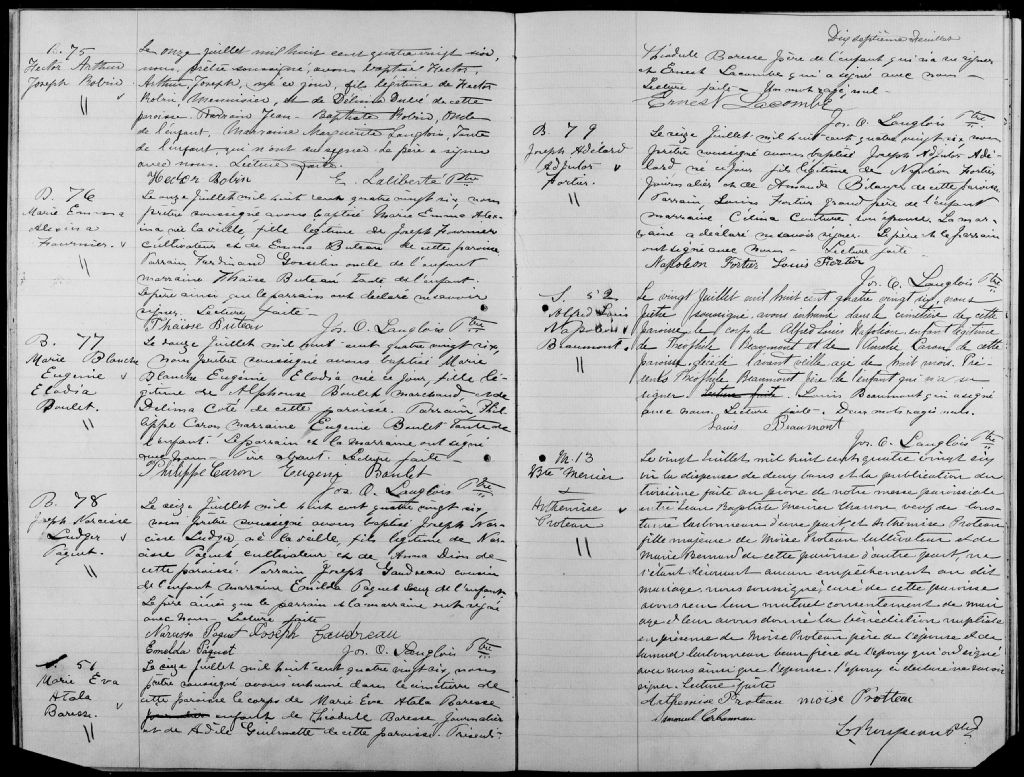 B. 75
Hector Arthur
Joseph Robin
Le onze Juillet mil huit cent quatre vingt six,
nous, prêtre soussigné, avons baptisé Hector,
Arthur, Joseph, né ce jour, fils légitime de Hector
Robin, Menuisier, et de Délima Dubé de cette
paroisse. Parrain Jean-Baptiste Robin, Oncle
de l'enfant, Marraine Marguerite Langlois, Tante
de l'enfant qui n'ont su signer. Le père a signé
avec nous. Lecture faite.
Hector Robin E. Laliberté Ptre
B. 76
Marie Emma
Alexina
Fournier.
Le onze Juillet mil huit cent quatre vingt six, nous
prêtre soussigné avons baptisé Marie Emma Alexi-
na née la veille, fille légitime de Joseph Fournier
cultivateur et de Emma Buteau de cette paroisse
Parrain Ferdinand Gosselin oncle de l'enfant
marraine Thaïse Buteau tante de l'enfant.
Le père ainsi que le parrain ont déclaré ne savoir
signer. Lecture faite-
Thaïsse Buteau Jos. O. Langlois Ptre
B. 77
Marie Blanche
Eugénie
Elodia
Boulet.
Le douze Juillet mil huit cent quatre vingt six,
nous prêtre soussigné avons baptisé Marie
Blanche Eugénie Elodia née ce jour, fille lé-
gitime de Alphonse Boulet marchand et de
Delima Coté de cette paroisse. Parrain Phi-
lippe Caron marraine Eugénie Boulet tante de
l'enfant. Le parrain et la marraine ont signé
avec nous- Père absent. Lecture faite-
Philippe Caron Eugenie Boulet
Jos. O. Langlois Ptre
B. 78
Joseph Narcisse
Ludger
Paquet.
Le seize Juillet mil huit cent quatre vingt six,
nous prêtre soussigné avons baptisé Joseph Nar-
cisse Ludger né la veille, fils légitime de Nar-
cisse Paquet cultivateur et de Anna Dion de
cette paroisse. Parrain Joseph Gaudreau cousin
de l'enfant marraine Emilda Paquet sœur de l'enfant.
Le père ainsi que le parrain et la marraine ont signé
avec nous- Lecture faite
Narcisse Paquet Joseph Gaudreau
Emelda Paquet Jos. O. Langlois Ptre
S. 51
Marie Eva
Atala
Baresse.
Le seize Juillet mil huit cent quatre vingt six, nous
prêtre soussigné avons inhumé dans le cimetière de
cette paroisse le corps de Marie Eva Atala Baresse
enfant de Théodule Baresse journalier
et de Adèle Guilmette de cette paroisse. Présents
Dix septième feuillet
Théodule Baresse père de l'enfant qui n'a su signer
et Ernest Lacombe qui a signé avec nous-
Lecture faite- Un mot rayé nul-
Ernest Lacombe
Jos. O. Langlois Ptre
B. 79
Joseph Adélard
Adjutor
Fortier.
Le seize Juillet mil huit cent quatre vingt six, nous
prêtre soussigné avons baptisé Joseph Adjutor Adé-
lard né ce jour fils légitime de Napoléon Fortier
journalier et de Amanda Blais de cette paroisse
Parrain, Louis Fortier grand père de l'enfant
marraine, Célina Couture son épouse. La mar-
raine a déclaré ne savoir signer. Le père et le parrain
ont signé avec nous- Lecture faite-
Napoleon Fortier Louis Fortier
Jos. O. Langlois Ptre
S. 52
Alfred Louis
Napoléon
Beaumont.
Le vingt Juillet mil huit cent quatre vingt six, nous
prêtre soussigné, avons inhumé dans le cimetière de cette
paroisse, le corps de Alfred Louis Napoléon, enfant légitime
de Théophile Beaumont et de Caron de cette
paroisse, décédé l'avant veille agé de huit mois. Pré-
sents Théophile Beaumont père de l'enfant qui n'a su
signer Lecture faite- Louis Beaumont qui a signé
avec nous. Lecture faite- Deux mots rayés nuls.
Louis Beaumont
Jos. O. Langlois Ptre
M. 13
Bte Mercier
&
Arthémise
Proteau
Le vingt Juillet mil huit cent quatre vingt six
vu la dispense de deux bans et la publication du
troisième faite au prône de notre messe paroissiale
entre Jean Baptiste Mercier veuf de Cons-
tance Carbonneau d'une part, et Arthémise Proteau
fille majeure de Moïse Proteau cultivateur et de
Marie Bernard de cette paroisse d'autre part, ne
s'étant découvert aucun empêchement au dit
mariage, nous soussigné, curé de cette paroisse
avons reçu leur mutuel consentement de mari-
age et leur avons donné la bénédiction nuptiale
en présence de Moïse Proteau père de l'épouse et de
Samuel Carbonneau beau frère de l'époux qui ont signé
avec nous ainsi que l'épouse. L'époux a déclaré ne savoir
signer. Lecture faite
Arthemise Proteau moïse Protteau
Samuel Carbonneau